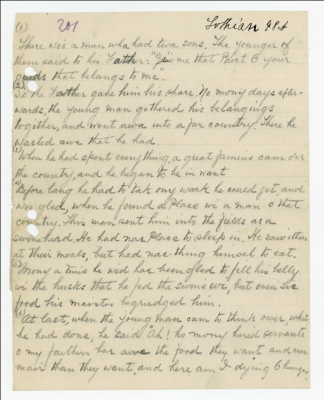 (1) 201 Lothian
There wis a man wha had twa sons. The younger of
them said to his Father: "Gi'e me that Pairt o your
guids that belongs to me."
So the Faither gave him his share. No mony days after-
wards, the young man gathered his belangings
together, and went awa into a far country. There he
wasted awe that he had.
When he had spent everything, a great famine cam o'er
the country, and he began to be in want
Before lang he had to tak ony wark he could get, and
was gled, when he found a Place wi a man o that
country. This man sent him into the fields as a
swineherd. He had nae Place to sleep in. He saw ithers
at their meals, but had nae thing himsel to eat.
Mony a time he wid hae been gled to fill his belly
wi the husks that he fed the swine wi, but even sic
food his maister begrudged him.
(6) At last, when the young man cam to think over what
he had done, he said "Ah! ho mony hired servants
o my faither hae awe the food they want and even
mair than they want, and here am I dying o hunger